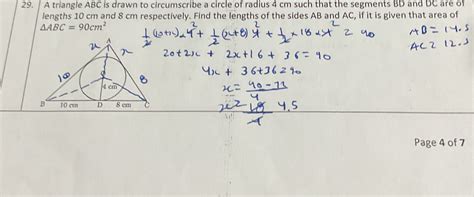 29. A triangle ABC is drawn to circumscribe a circle of radius 4 cm such that the segments BD and DC are of
lengths 10 cm and 8 cm respectively. Find the lengths of the sides AB and AC, if it is given that area of
ΔABC = 90cm²
1/2 (10+x) x 4 + 1/2 (x+8) 4 + 1/2 x 18 x 4 = 90
AB = 14.5
AC = 12.5
20+2x + 2x+16 + 36 = 90
4x + 36+36 = 90
x = 90-72/4
x = 18/4 4.5
A
x x
10 8
4 cm
B 10 cm D 8 cm C
Page 4 of 7